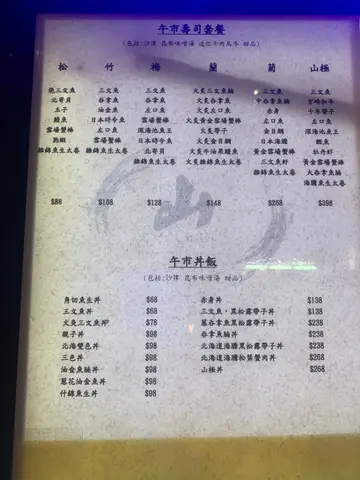 午市壽司套餐
(包括:沙律 昆布味噌湯 迷你牛肉烏冬 甜品)
松 竹 梅 蘭 菊 山極
燒三文魚 三文魚 三文魚 火炙三文魚腩 三文魚 三文魚
北寄貝 吞拿魚 吞拿魚 火炙吞拿魚 中吞拿魚腩
玉子 油金魚 左口魚 火炙左口魚 赤身 十年帶子
鰻魚 日本時令魚 雲場蟹棒 火炙帶子 左口魚 左口魚
雲場蟹棒 左口魚 深海池魚王 火炙金目鯛 金目鯛 深海池魚王
熟蝦 雲場蟹棒 日本時令魚 火炙牛油果鰻魚 日本海膽
雜錦魚生太卷 雜錦魚生太卷 北寄貝 火炙雜錦魚生太卷 黃金雲場蟹棒 牡丹蝦
雜錦魚生太卷 三文魚籽 黃金雲場蟹棒
雜錦魚生太卷 大吞拿魚腩
海膽魚生太卷
$88 $108 $128 $148 $288 $398
山
午市丼飯
(包括:沙律 昆布味噌湯 甜品)
角切魚生丼 $68 赤身丼 $138
三文魚丼 $68 三文魚,黑松露帶子丼 $138
火炙三文魚丼 $78 蔥吞拿魚黑松露帶子丼 $238
親子丼 $98 吞拿魚腩丼 $238
北海雙色丼 $98 北海道海膽黑松露帶子丼 $238
三色丼 $98 北海道海膽松葉蟹肉丼 $268
油金魚腩丼 $98 山極丼 $268
蔥花油金魚丼 $98
什錦魚生丼 $98